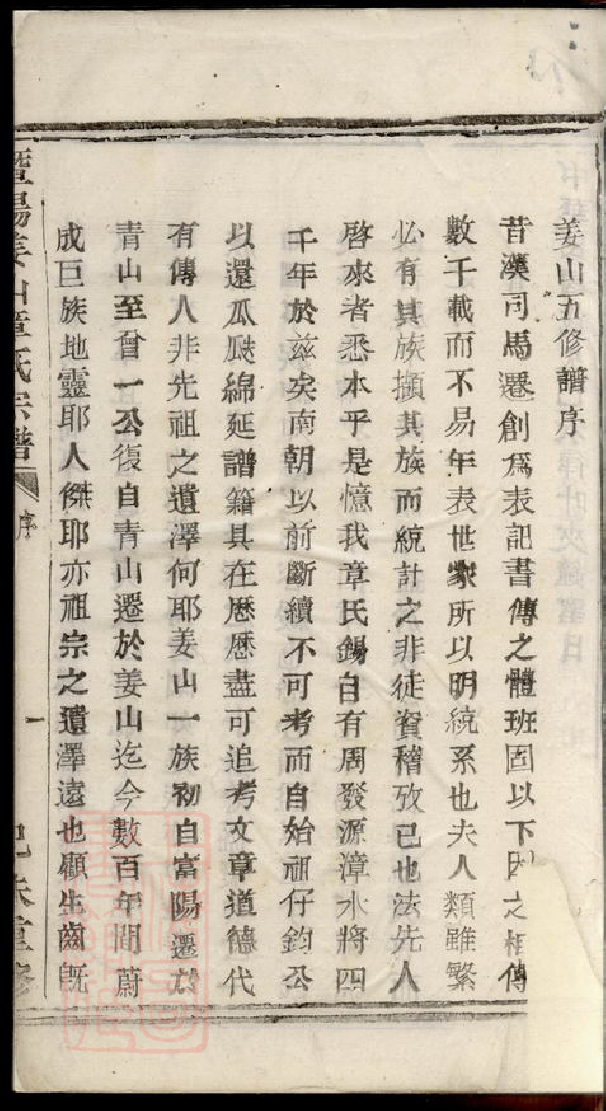 姜山五修譜序
昔漢司馬遷創爲表記書傳之體班固以下因之相傳
數千載而不易年表世家所以明統系也夫人類雖繁
必有其族擷其族而統計之非徒資稽攷已也法先人
啓來者悉本乎是憶我章氏錫自有周發源漳水將四
千年於茲矣南朝以前斷續不可考而自始祖仔鈞公
以還瓜瓞綿延譜籍具在歷歷盡可追考文章道德代
有傳人非先祖之遺澤何耶姜山一族初自富陽遷於
青山至曾一公復自青山遷於姜山迄今數百年間蔚
成巨族地靈耶人傑耶亦祖宗之遺澤遠也顧生齒旣
暨陽姜山章氏宗譜 序 一 重修